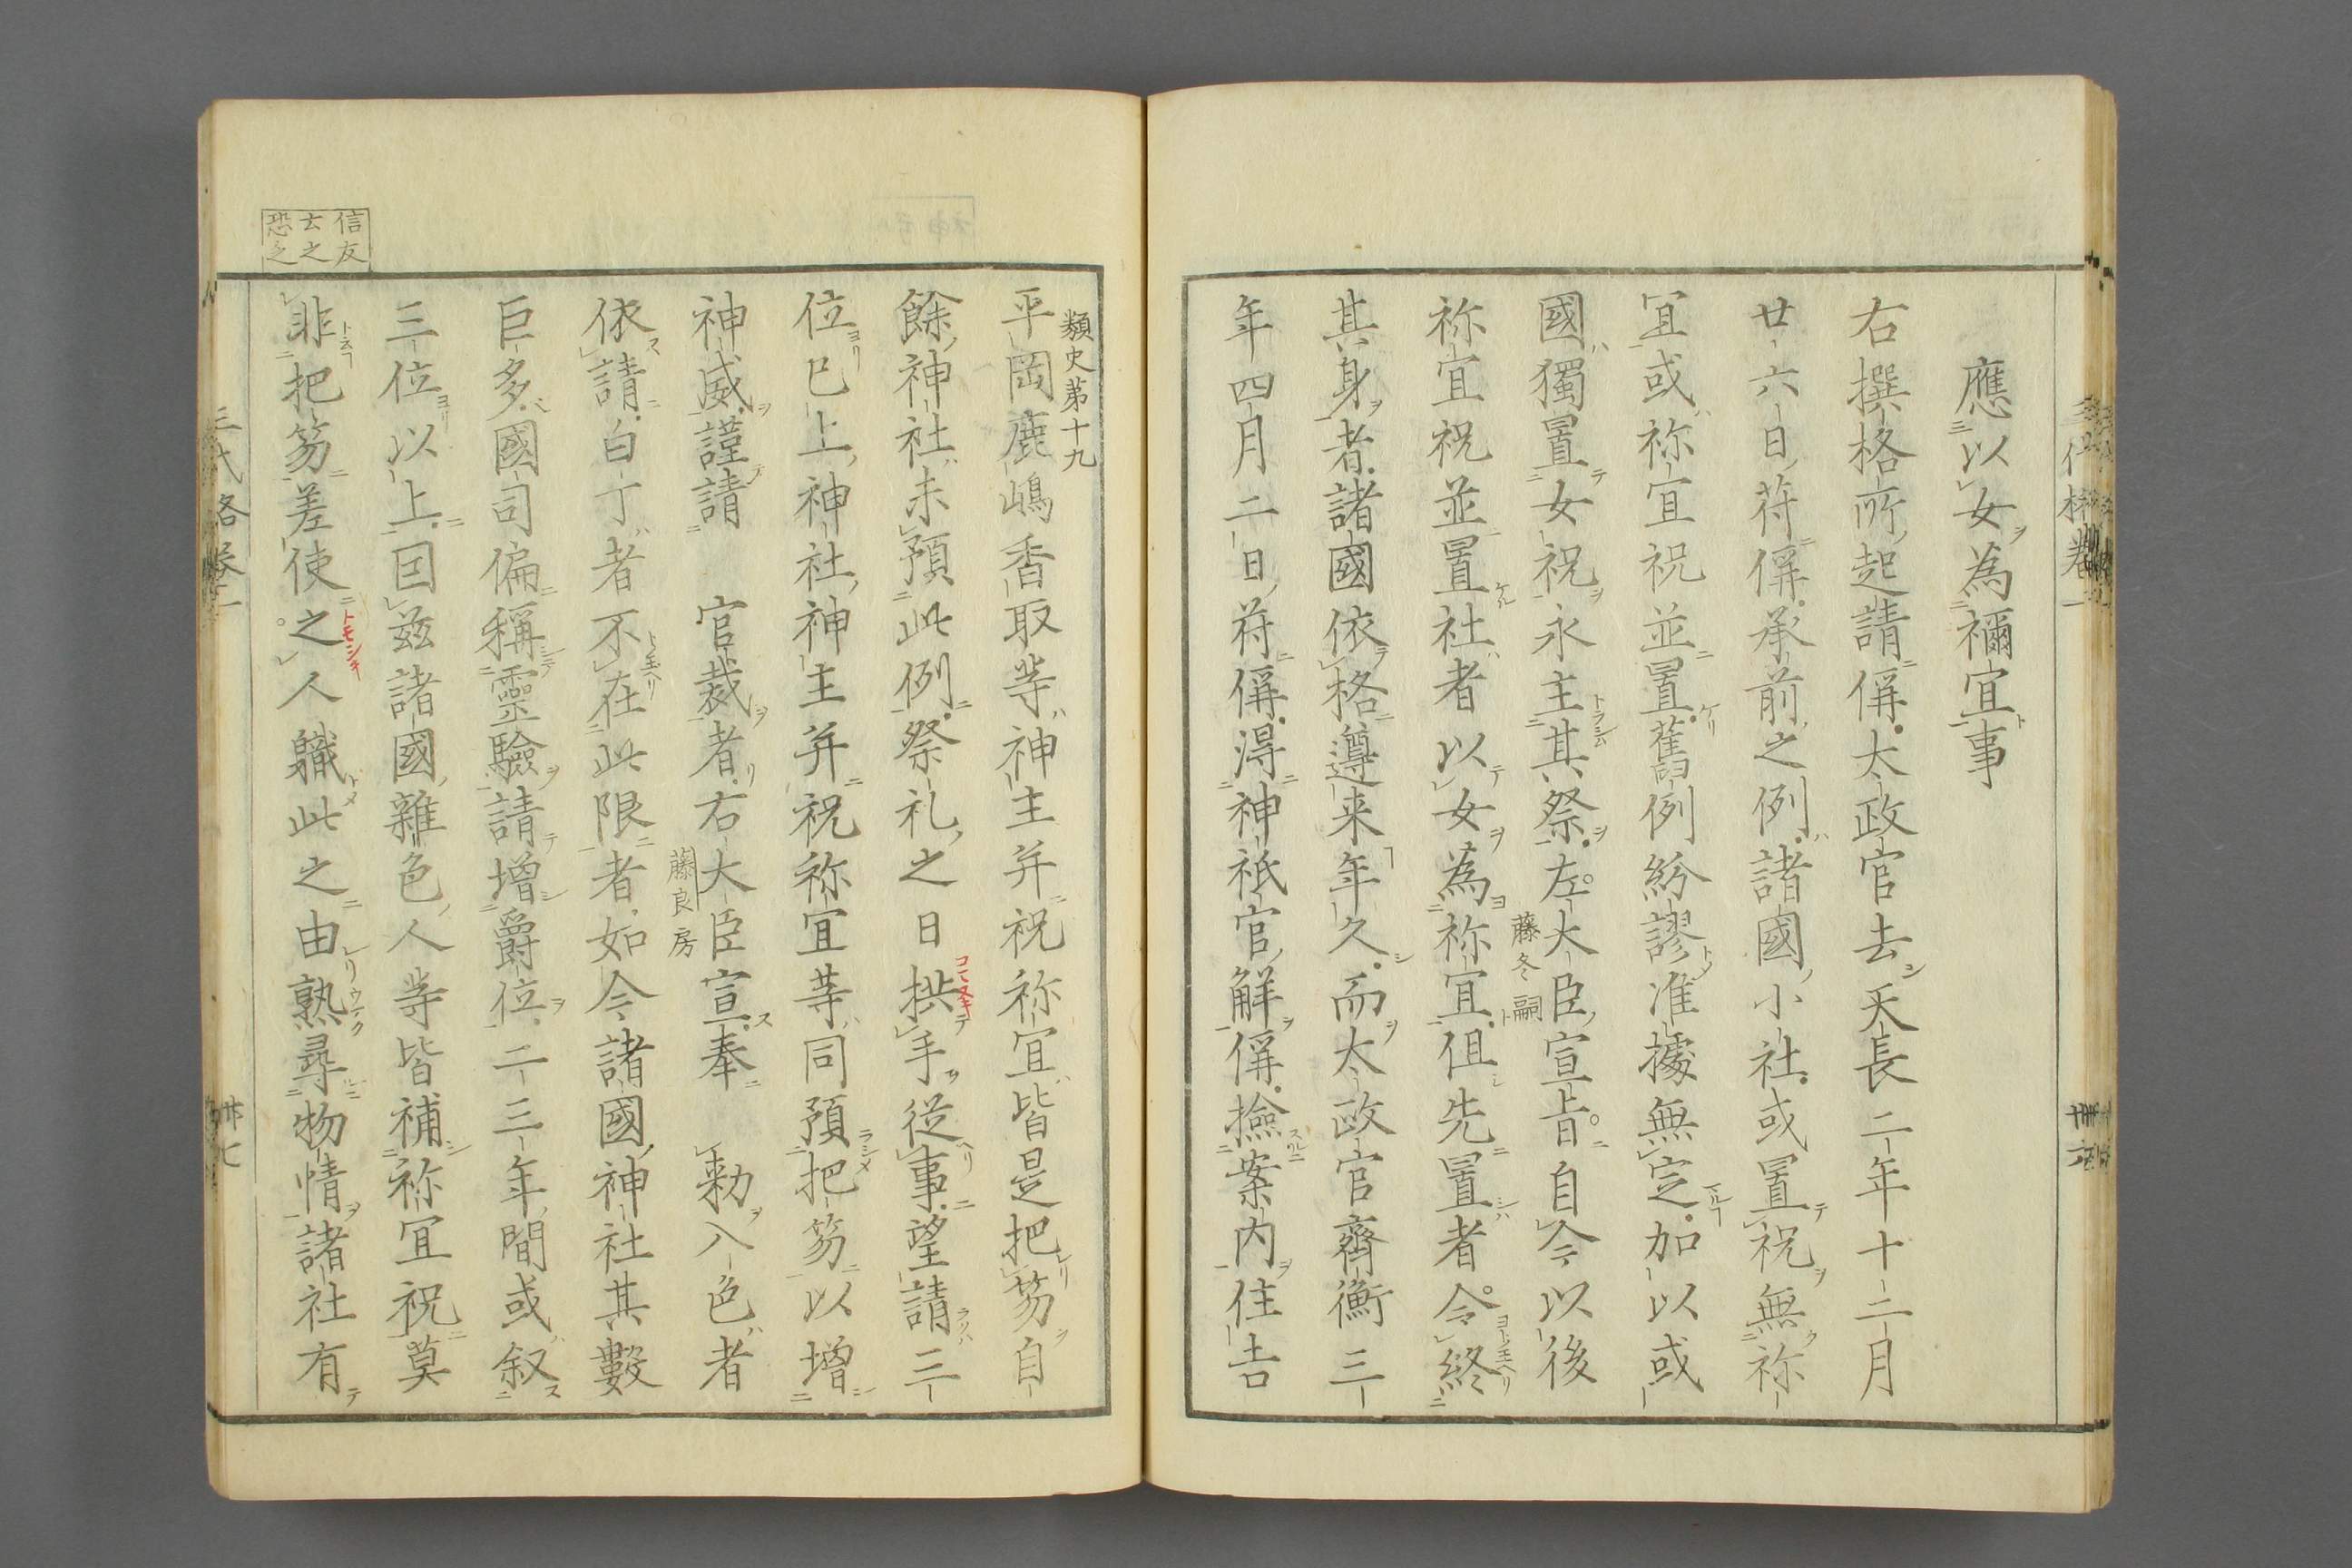 應以女為禰宜事
右撰格所起請偁太政官去天長二年十二月
廿六日符偁承前之例諸國小社或置祝無祢
宜或祢宜祝並置舊例紛謬准據無定加以或
國獨置女祝永主其祭左大臣宣旨自今以後
藤冬嗣
祢宜祝並置社者以女為祢宜但先置者令終
其身者諸國依格遵来年久而太政官齊衡三
年四月二日符偁得神祇官解偁撿案内住吉
類史第十九
平岡鹿嶋香取等神主并祝祢宜皆是把笏自
餘神社未預此例祭礼之日拱手從事望請三
位已上神社神主并祝祢宜等同預把笏以增
神威謹請官裁者右大臣宣奉勅八色者
藤良房
依請白丁者不在此限者如今諸國神社其數
巨多國司偏稱靈驗請增爵位二三年間或叙
三位以上因茲諸國雜色人等皆補祢宜祝莫
非把笏差使之人職此之由熟尋物情諸社有
信友
云之
恐之
三代格卷一
卅七
卅六